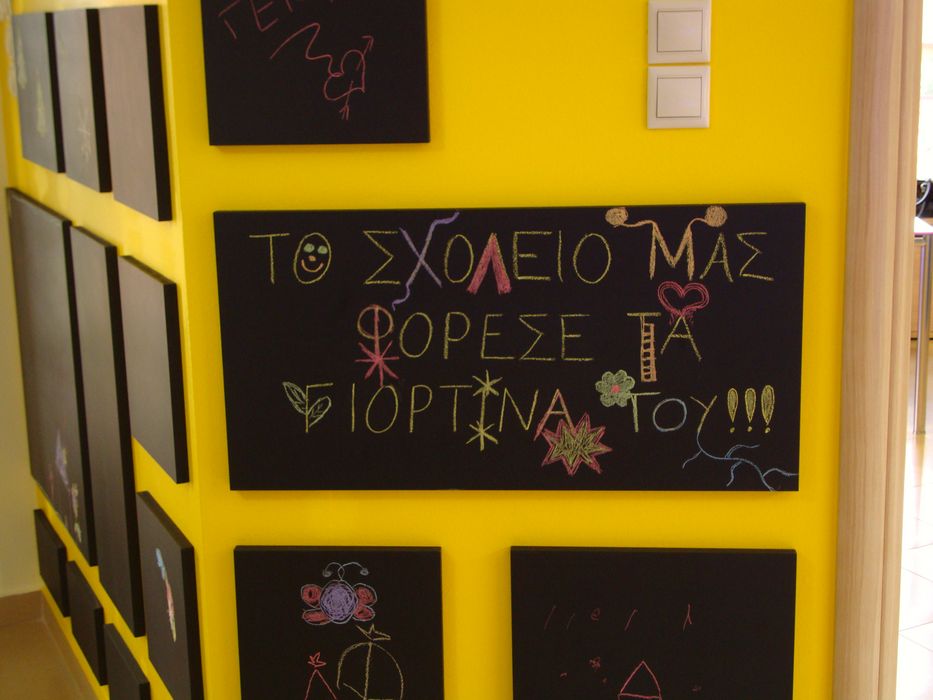 ΤΟ ΣΧΟΛΕΙΟ ΜΑΣ
ΦΟΡΕΣΕ ΤΑ
ΓΙΟΡΤΙΝΑ ΤΟΥ!!!